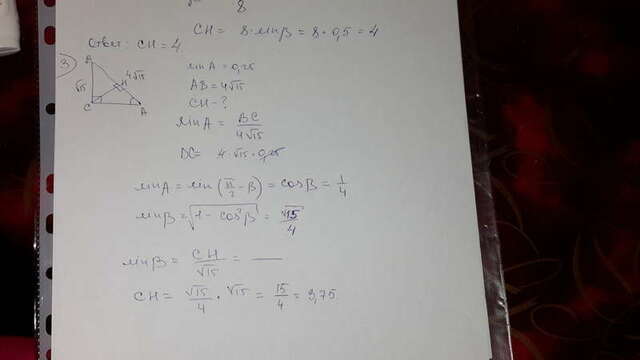 8
CH = 8·sinβ = 8·0,5 = 4
Ответ: CH = 4.
3)
B
4√15
√15
H
C
A
sinA = 0,25
AB = 4√15
CH - ?
sinA = BC/4√15
BC = 4·√15·0,25
sinA = sin(π/2 - β) = cosβ = 1/4
sinβ = √(1 - cos²β) = √15/4
sinβ = CH/√15 = —
CH = √15/4 · √15 = 15/4 = 3,75.